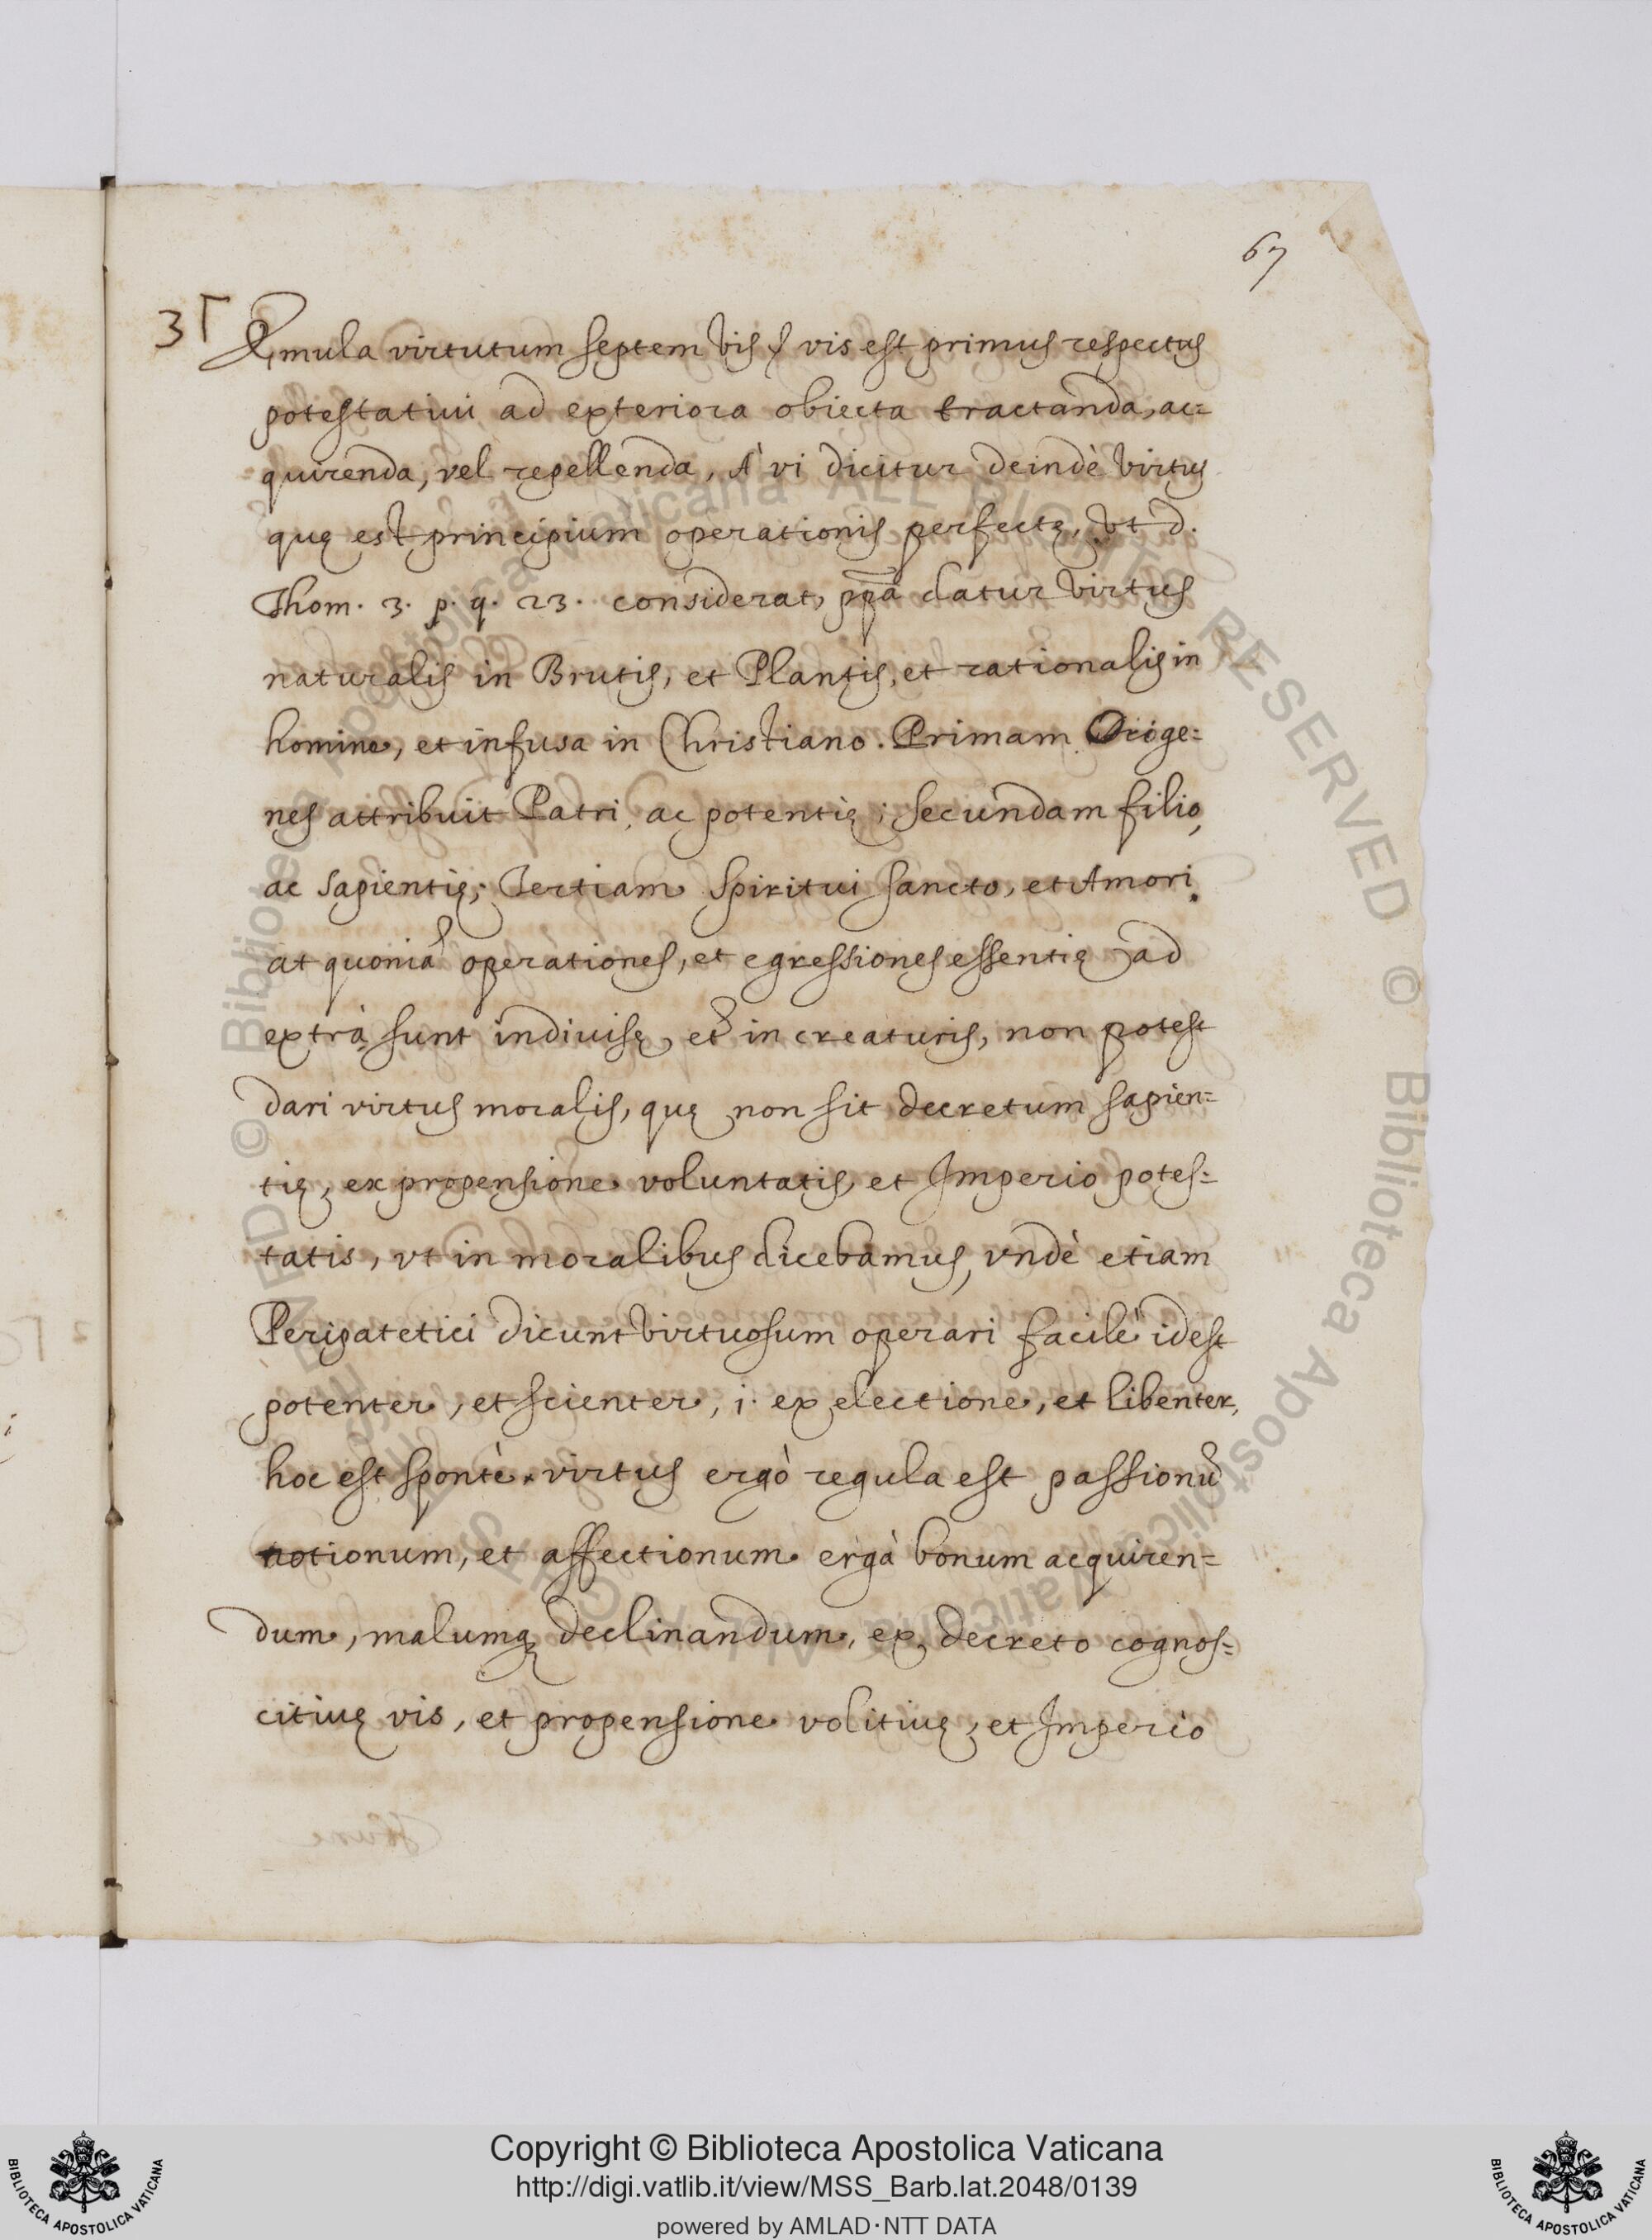 67
3
Æmula virtutum septem bis s vis est primus respectus
potestatiui ad exteriora obiecta tractanda, ac=
quirenda, vel repellenda, A' vi dicitur deindè virtus
quę est principium operationis perfectę, vt d.
Thom. 3. p. q. 23. considerat, ppā datur virtus
naturalis in Brutis, et Plantis, et rationalis in
homine, et infusa in Christiano. Primam Orige=
nes attribuit Patri, ac potentię; secundam filio,
ac sapientię; Tertiam Spiritui sancto, et Amori.
at quoniã operationes, et egressiones essentię ad
extrà sunt indiuisę, et in creaturis, non potest
dari virtus moralis, quę non sit decretum sapien=
tię, ex propensione voluntatis, et Imperio potes=
tatis, vt in moralibus dicebamus, vndè etiam
Peripatetici dicunt virtuosum operari facilè idest
potenter, et scienter, i. ex electione, et libenter,
hoc est spontè. virtus ergò regula est passionũ
notionum, et affectionum ergà bonum acquiren=
dum, malumq declinandum, ex decreto cognos=
citiuę vis, et propensione volitiuę, et Imperio
© Biblioteca Apostolica Vaticana ALL RIGHTS RESERVED © Biblioteca Apostolica Vaticana ALL RIGHTS RESERVED
Copyright © Biblioteca Apostolica Vaticana
http://digi.vatlib.it/view/MSS_Barb.lat.2048/0139
powered by AMLAD·NTT DATA
BIBLIOTECA APOSTOLICA VATICANA
BIBLIOTECA APOSTOLICA VATICANA